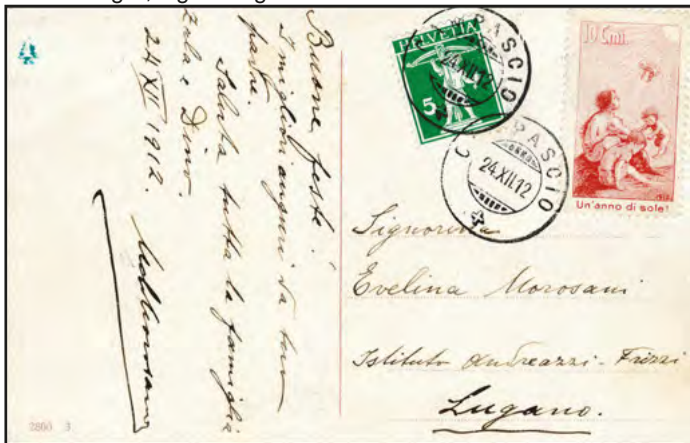 Buone feste!
I migliori auguri da tuo
padre.
Saluta tutta la famiglia
e Dino.
24 XII 1912.
HELVETIA
5
PASCIO
24.XII.12
PASCIO
24.XII.12
10 Cmi.
1912
Un'anno di sole!
Signorina
Evelina Morosani
Istituto Andreazzi - Frizzi
Lugano.
2800 3